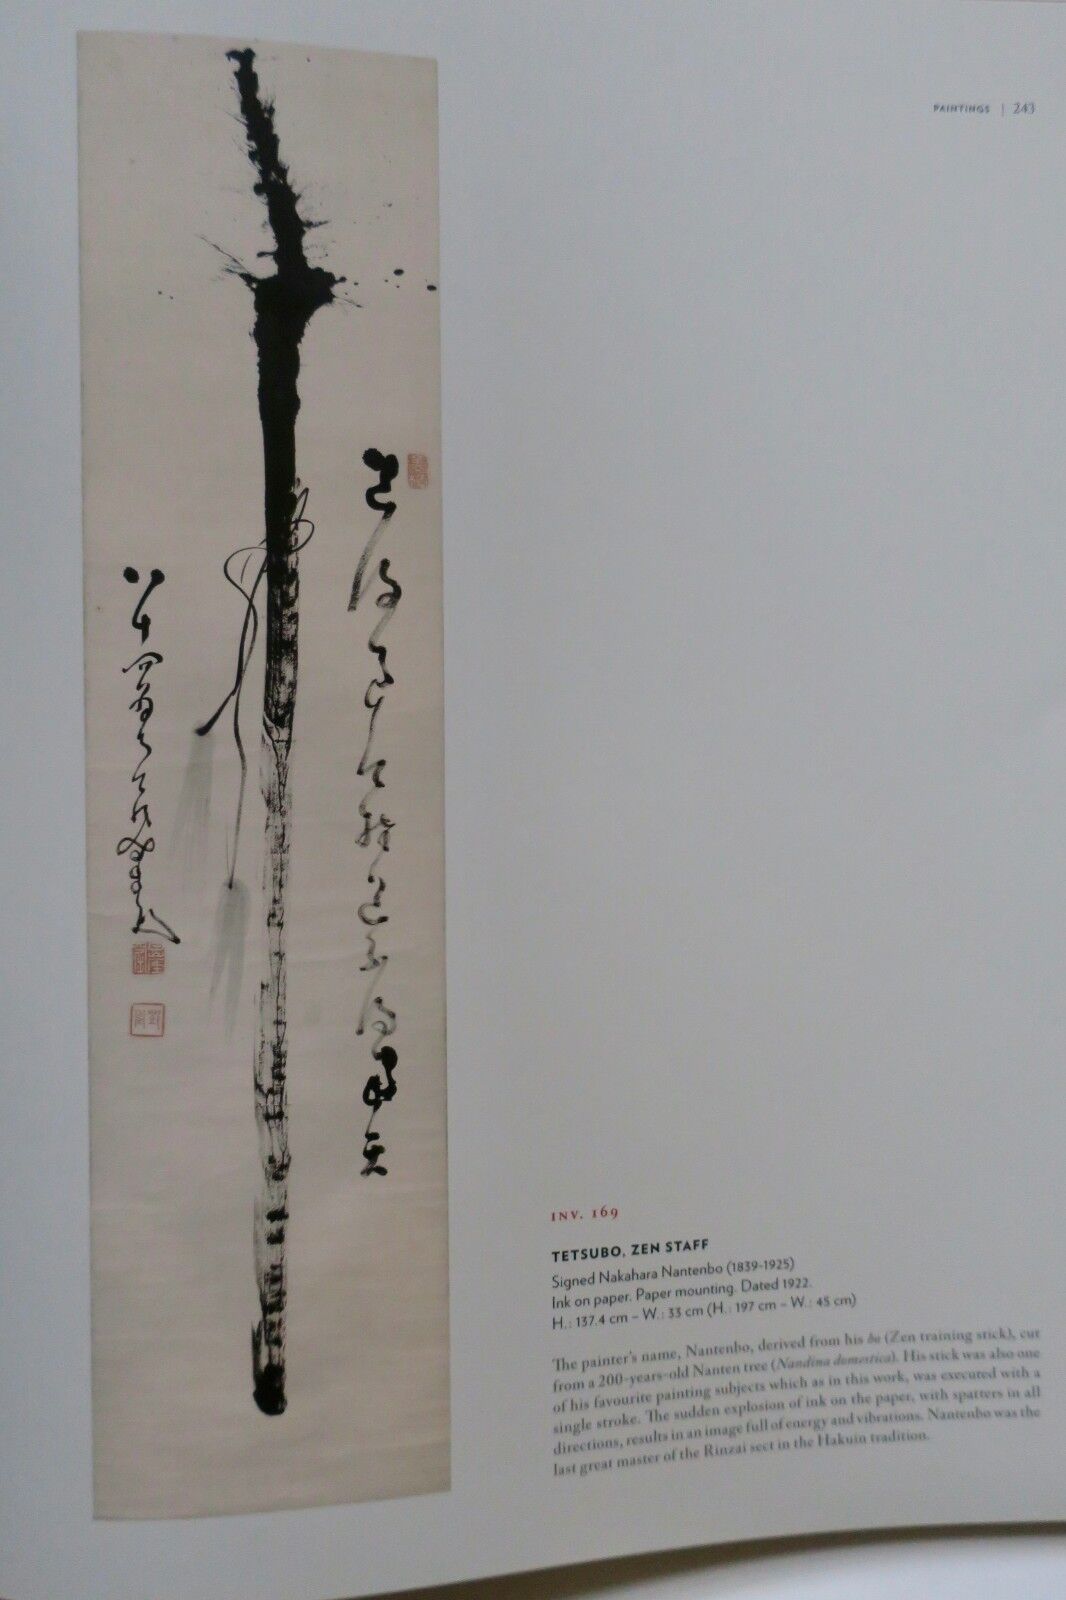 PAINTINGS | 243
道不得
八十四翁
INV. 169
TETSUBO, ZEN STAFF
Signed Nakahara Nantenbo (1839-1925)
Ink on paper. Paper mounting. Dated 1922.
H.: 137.4 cm – W.: 33 cm (H.: 197 cm – W.: 45 cm)
The painter's name, Nantenbo, derived from his bo (Zen training stick), cut
from a 200-years-old Nanten tree (Nandina domestica). His stick was also one
of his favourite painting subjects which as in this work, was executed with a
single stroke. The sudden explosion of ink on the paper, with spatters in all
directions, results in an image full of energy and vibrations. Nantenbo was the
last great master of the Rinzai sect in the Hakuin tradition.